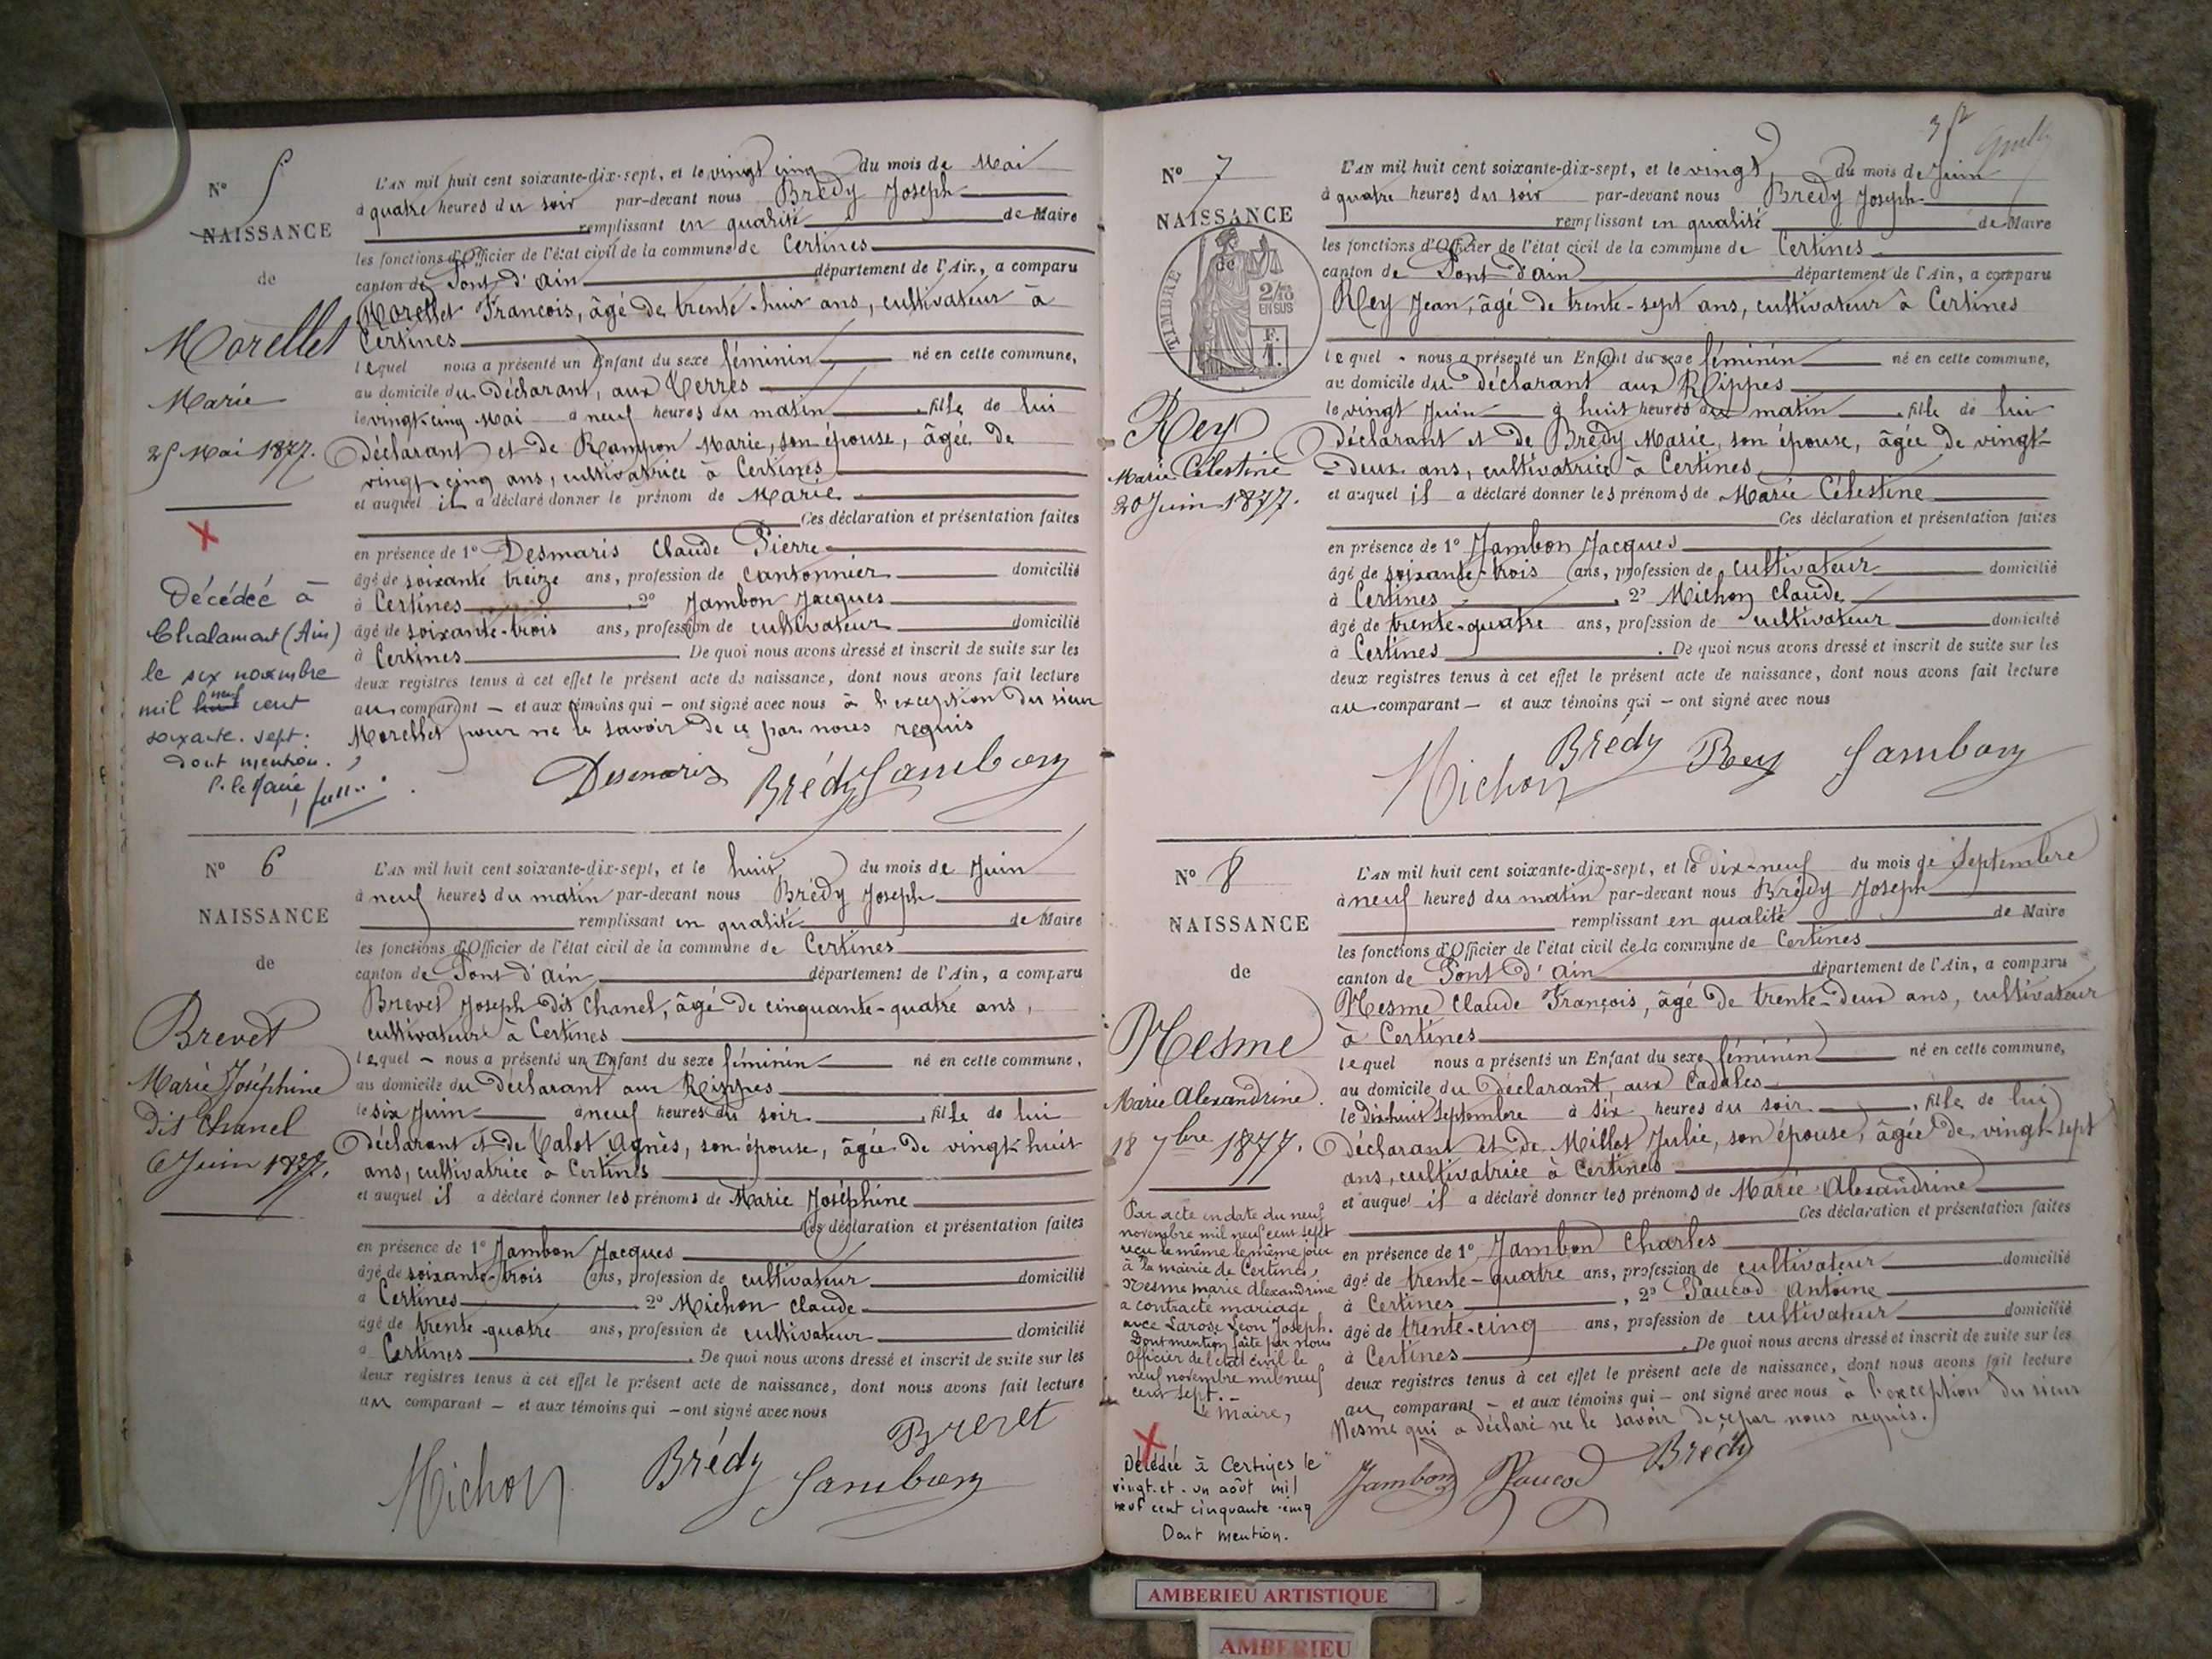 N° 5
NAISSANCE
de
Morellet
Marie
25 Mai 1877.
Décédée à
Chalamont (Ain)
le six novembre
mil huit neuf cent
soixante-sept.
dont mention.
P. le Maire,
L'AN mil huit cent soixante-dix-sept, et le vingt cinq du mois de Mai
à quatre heures du soir par-devant nous Brédy Joseph
remplissant en qualité de Maire
les fonctions d'Officier de l'état civil de la commune de Certines
canton de Pont d'ain département de l'Ain, a comparu
Morellet François, âgé de trente-huit ans, cultivateur à
Certines
lequel nous a présenté un Enfant du sexe féminin né en cette commune,
au domicile du Déclarant, aux Terres
le vingt-cinq Mai à neuf heures du matin, fille de lui
Déclarant et de Rampon Marie, son épouse, âgée de
vingt-cinq ans, cultivatrice à Certines
et auquel il a déclaré donner le prénom de Marie
Ces déclaration et présentation faites
en présence de 1° Desmaris Claude Pierre
âgé de soixante treize ans, profession de cantonnier domicilié
à Certines, 2° Jambon Jacques
âgé de soixante-trois ans, profession de cultivateur domicilié
à Certines. De quoi nous avons dressé et inscrit de suite sur les
deux registres tenus à cet effet le présent acte de naissance, dont nous avons fait lecture
au comparant – et aux témoins qui – ont signé avec nous à l'exception du sieur
Morellet pour ne le savoir de ce par nous requis
Desmaris Brédy Jambon
N° 6
NAISSANCE
de
Brevet
Marie Joséphine
dit Chanel
6 Juin 1877.
L'AN mil huit cent soixante-dix-sept, et le huit du mois de Juin
à neuf heures du matin par-devant nous Brédy Joseph
remplissant en qualité de Maire
les fonctions d'Officier de l'état civil de la commune de Certines
canton de Pont d'ain département de l'Ain, a comparu
Brevet Joseph dit Chanel, âgé de cinquante-quatre ans,
cultivateur à Certines
lequel – nous a présenté un Enfant du sexe féminin né en cette commune,
au domicile du Déclarant aux Rippes
le six Juin à neuf heures du soir, fille de lui
Déclarant et de Talot Agnès, son épouse, âgée de vingt-huit
ans, cultivatrice à Certines
et auquel il a déclaré donner les prénoms de Marie Joséphine
Ces déclaration et présentation faites
en présence de 1° Jambon Jacques
âgé de soixante-trois ans, profession de cultivateur domicilié
à Certines, 2° Michon Claude
âgé de trente-quatre ans, profession de cultivateur domicilié
à Certines. De quoi nous avons dressé et inscrit de suite sur les
deux registres tenus à cet effet le présent acte de naissance, dont nous avons fait lecture
au comparant – et aux témoins qui – ont signé avec nous
Michon Brédy Jambon Brevet
N° 7
NAISSANCE
de
TIMBRE
2/10
EN SUS
F.
1.
Rey
Marie Célestine
20 Juin 1877.
L'AN mil huit cent soixante-dix-sept, et le vingt, du mois de Juin
à quatre heures du soir par-devant nous Brédy Joseph
remplissant en qualité de Maire
les fonctions d'Officier de l'état civil de la commune de Certines
canton de Pont d'ain département de l'Ain, a comparu
Rey Jean, âgé de trente-sept ans, cultivateur à Certines
lequel - nous a présenté un Enfant du sexe féminin né en cette commune,
au domicile du Déclarant aux Rippes
le vingt Juin à huit heures du matin, fille de lui
Déclarant et de Brédy Marie, son épouse, âgée de vingt-
deux ans, cultivatrice à Certines
et auquel il a déclaré donner les prénoms de Marie Célestine
Ces déclaration et présentation faites
en présence de 1° Jambon Jacques
âgé de soixante-trois ans, profession de cultivateur domicilié
à Certines, 2° Michon Claude
âgé de trente-quatre ans, profession de cultivateur domicilié
à Certines. De quoi nous avons dressé et inscrit de suite sur les
deux registres tenus à cet effet le présent acte de naissance, dont nous avons fait lecture
au comparant – et aux témoins qui – ont signé avec nous
Michon Brédy Rey Jambon
N° 8
NAISSANCE
de
Mesme
Marie Alexandrine.
18 7bre 1877.
Par acte en date du neuf
novembre mil neuf cent sept
reçu le même le même jour
à la mairie de Certines,
Mesme marie Alexandrine
a contracté mariage
avec Larose Léon Joseph.
Dont mention faite par nous
Officier de l'état civil le
neuf novembre mil neuf
cent sept. –
Le Maire,
Décédée à Certines le
vingt-et-un août mil
neuf cent cinquante-cinq
Dont mention.
L'AN mil huit cent soixante-dix-sept, et le dix-neuf du mois de Septembre
à neuf heures du matin par-devant nous Brédy Joseph
remplissant en qualité de Maire
les fonctions d'Officier de l'état civil de la commune de Certines
canton de Pont d'ain département de l'Ain, a comparu
Mesme Claude François, âgé de trente-deux ans, cultivateur
à Certines
lequel nous a présenté un Enfant du sexe féminin né en cette commune,
au domicile du Déclarant, aux Cadales
le Dix huit Septembre à six heures du soir, fille de lui
Déclarant et de Millet Julie, son épouse, âgée de vingt-sept
ans, cultivatrice à Certines
et auquel il a déclaré donner les prénoms de Marie Alexandrine
Ces déclaration et présentation faites
en présence de 1° Jambon Charles
âgé de trente-quatre ans, profession de cultivateur domicilié
à Certines, 2° Paucod Antoine
âgé de trente-cinq ans, profession de cultivateur domicilié
à Certines. De quoi nous avons dressé et inscrit de suite sur les
deux registres tenus à cet effet le présent acte de naissance, dont nous avons fait lecture
au comparant – et aux témoins qui – ont signé avec nous à l'exception du sieur
Mesme qui a déclaré ne le savoir de ce par nous requis.
Jambon Paucod Brédy
AMBERIEU ARTISTIQUE
AMBERIEU